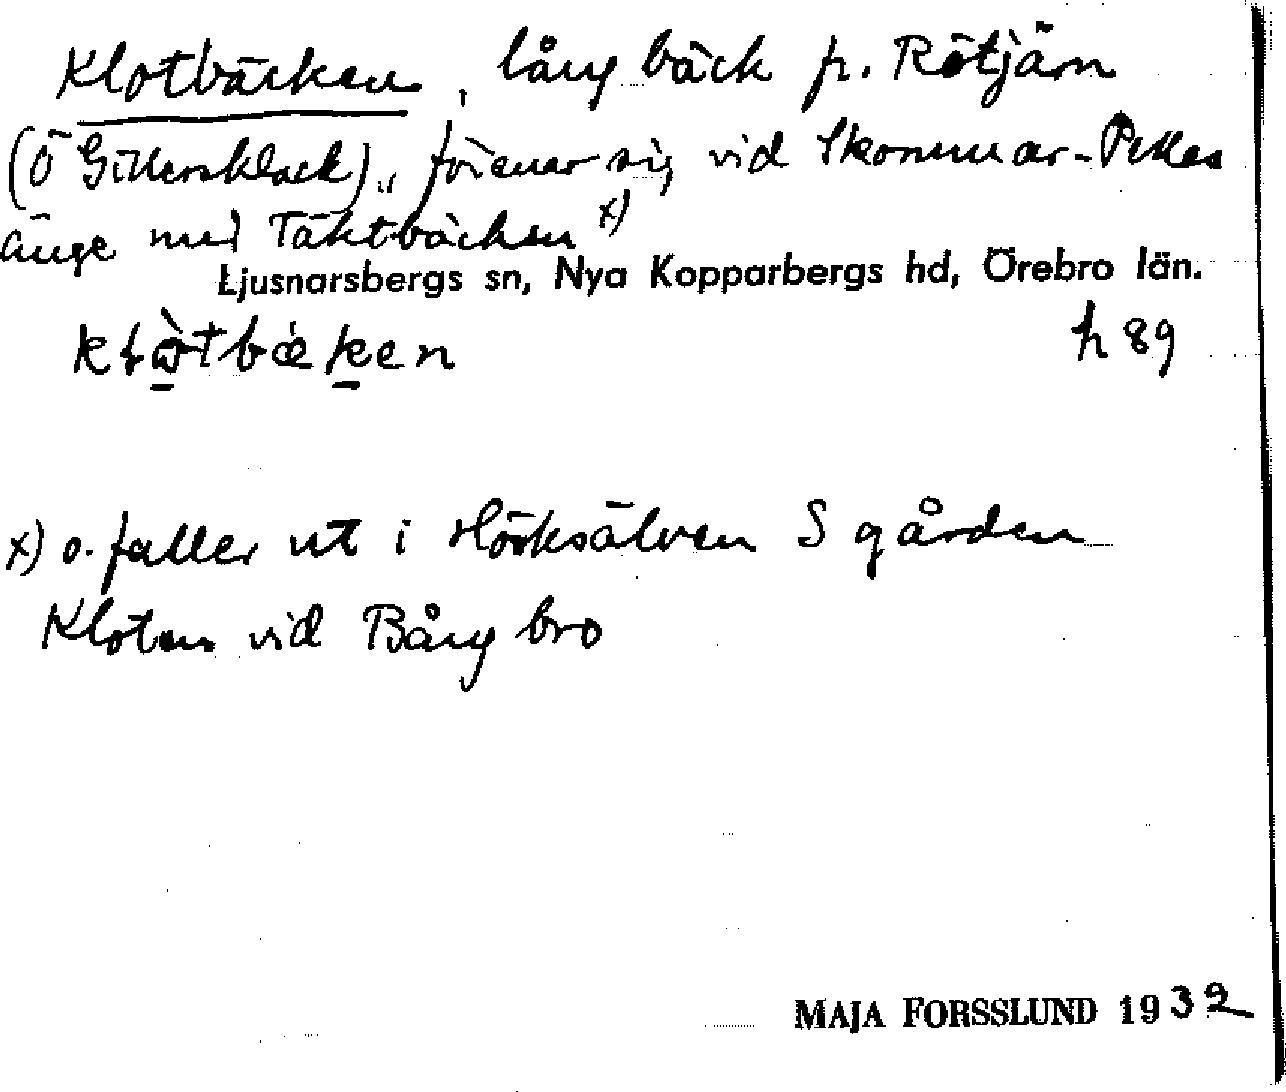 Klotbäcken, lång bäck fr. Rötjärn
(Ö Gillersklack), förenar sig vid Skommar-Pelles
änge med Täktbäcken x)
Ljusnarsbergs sn, Nya Kopparbergs hd, Örebro län.
h 89
x) o. faller ut i Hörksälven S gården
Kloten vid Bång bro
MAJA FORSSLUND 1932